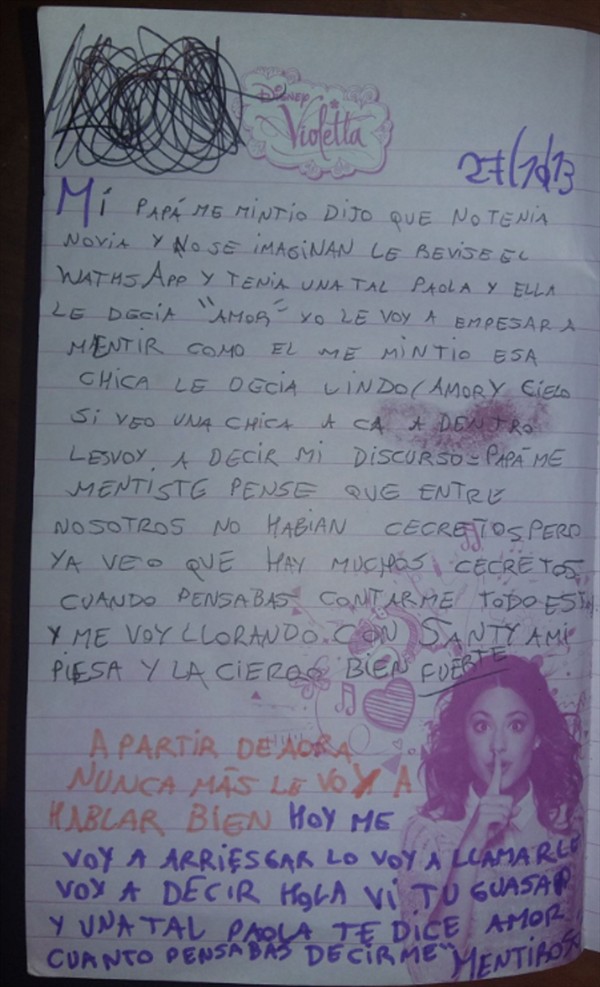 DISNEY
Violetta
27/10/13
MI PAPÁ ME MINTIO DIJO QUE NO TENIA
NOVIA Y NO SE IMAGINAN LE REVISE EL
WATHSAPP Y TENIA UNA TAL PAOLA Y ELLA
LE DECIA "AMOR" YO LE VOY A EMPESAR A
MENTIR COMO EL ME MINTIO ESA
CHICA LE DECIA LINDO/AMOR Y CIELO
SI VEO UNA CHICA A CA A DENTRO
LESVOY A DECIR MI DISCURSO=PAPÁ ME
MENTISTE PENSE QUE ENTRE
NOSOTROS NO HABIAN CECRETOS PERO
YA VEO QUE HAY MUCHOS CECRETOS
CUANDO PENSABAS CONTARME TODO ESTO
Y ME VOY LLORANDO CON SANTY A MI
PIESA Y LA CIERRO BIEN FUERTE
A PARTIR DE AORA
NUNCA MÁS LE VOY A
HABLAR BIEN HOY ME
VOY A ARRIESGAR LO VOY A LLAMARLO
VOY A DECIR HOLA VI TU GUASAP
Y UNA TAL PAOLA TE DICE AMOR
CUANTO PENSABAS DECIRME" MENTIROSO